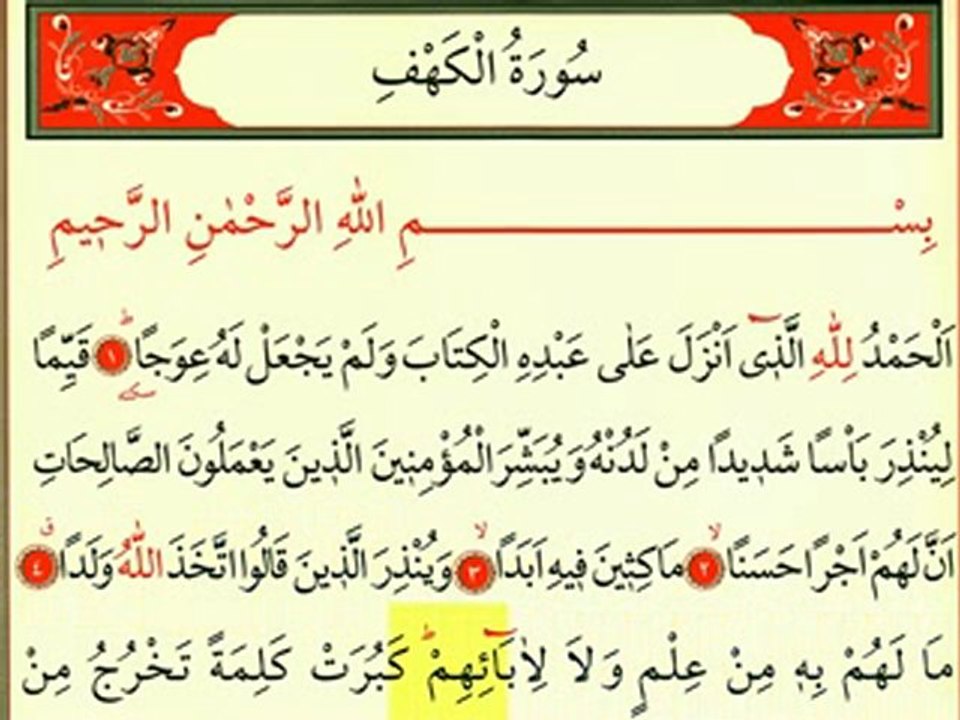 سُورَةُ الْكَهْفِ
بِسْمِ اللهِ الرَّحْمٰنِ الرَّحِيمِ
اَلْحَمْدُ لِلّٰهِ الَّذِٓى اَنْزَلَ عَلٰى عَبْدِهِ الْكِتَابَ وَلَمْ يَجْعَلْ لَهُ عِوَجًاۜ ١ قَيِّمًا
لِيُنْذِرَ بَاْسًا شَدِيدًا مِنْ لَدُنْهُ وَيُبَشِّرَ الْمُؤْمِنِينَ الَّذِينَ يَعْمَلُونَ الصَّالِحَاتِ
اَنَّ لَهُمْ اَجْرًا حَسَنًاۙ ٢ مَاكِثِينَ فِيهِ اَبَدًاۙ ٣ وَيُنْذِرَ الَّذِينَ قَالُوا اتَّخَذَ اللّٰهُ وَلَدًا ٤
مَا لَهُمْ بِهِ مِنْ عِلْمٍ وَلَا لِاٰبَٓائِهِمْۜ كَبُرَتْ كَلِمَةً تَخْرُجُ مِنْ